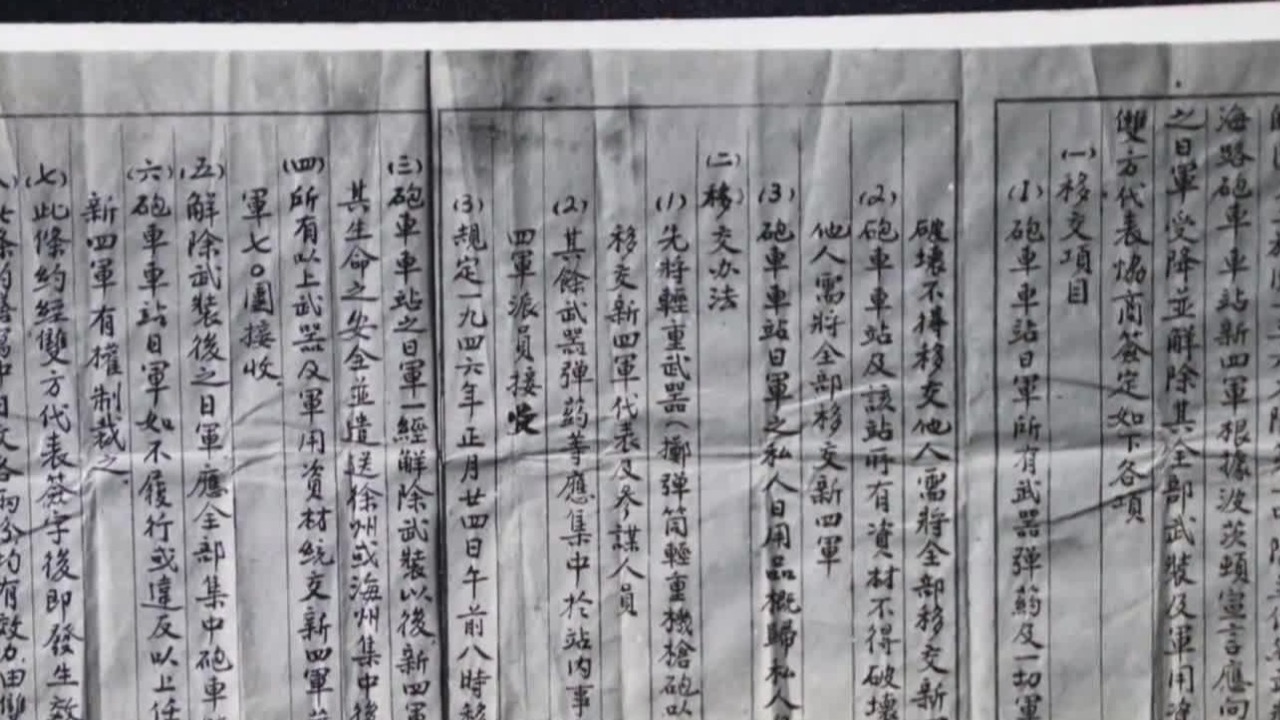 海路砲車車站新四軍根據波茨頓宣言應向
之日軍受降並解除其全部武裝及軍用
雙方代表協商簽定如下各項
(一)移交項目
(1)砲車車站日軍所有武器弹葯及一切軍
破壞不得移交他人需將全部移交新
(2)砲車車站及該站所有資材不得破壞
他人需將全部移交新四軍
(3)砲車車站日軍之私人日用品概歸私人
(二)移交办法
(1)先將輕重武器(擲弹筒輕重機槍砲以
移交新四軍代表及參謀人員
(2)其餘武器弹葯等應集中於站内事
四軍派員接受
(3)規定一九四六年正月廿四日午前八時移
(三)砲車車站之日軍一經解除武裝以後新四軍
其生命之安全並遣送徐州或海州集中後
(四)所有以上武器及軍用資材統交新四軍
軍七〇團接收
(五)解除武裝後之日軍應全部集中砲車
(六)砲車車站日軍如不履行或違反以上任
新四軍有權制裁之
(七)此條約經雙方代表簽字後即發生效